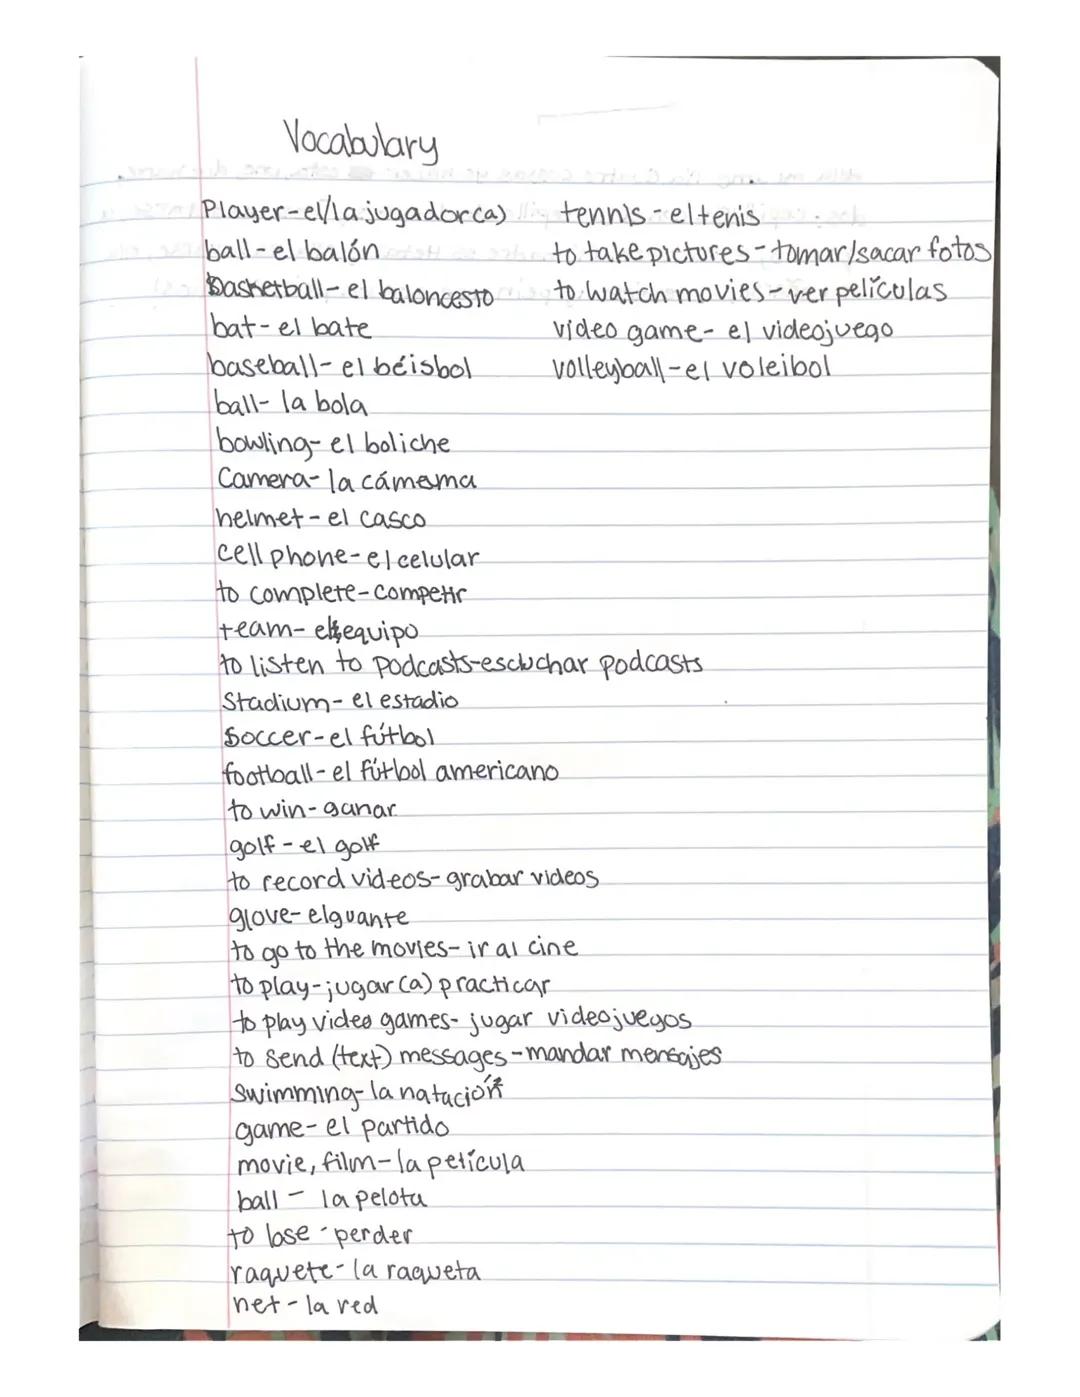 Vocabulary
Player-el/la jugador(a)
ball-el balón
Basketball-el baloncesto
bat-el bate
baseball-el béisbol
ball-la bola
bowling-el boliche
Camera-la cámama
helmet-el casco
cell phone-el celular
to complete-competir
team-el equipo
to listen to podcasts-escuchar podcasts
Stadium-el estadio
Soccer-el fútbol
football-el fútbol americano
to win-ganar
golf-el golf
to record videos-grabar videos
glove-el guante
to go to the movies-ir al cine
to play-jugar (a) practicar
to play video games-jugar videojuegos
to send (text) messages-mandar mensajes
Swimming-la natación
game-el partido
movie, film-la película
ball - la pelota
to lose -perder
raquete-la raqueta
net-la red
tennis-el tenis
to take pictures-tomar/sacar fotos
to watch movies-ver películas
video game-el videojuego
volleyball-el voleibol